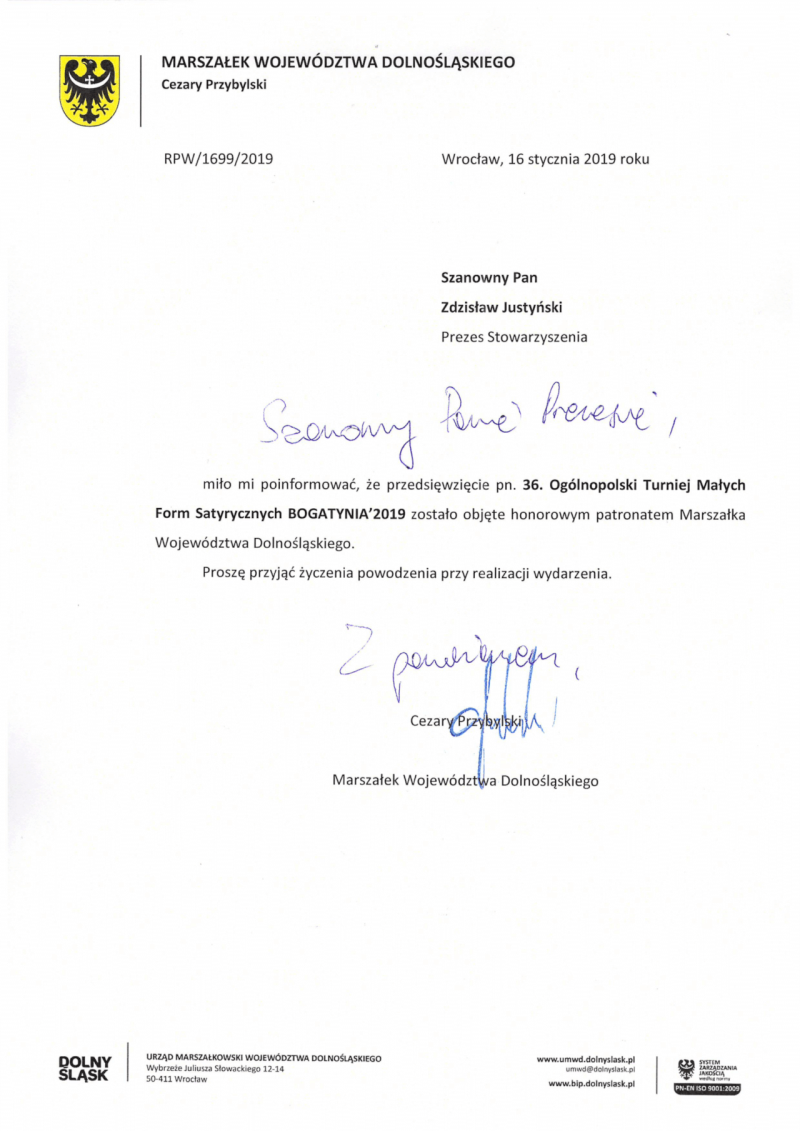 MARSZAŁEK WOJEWÓDZTWA DOLNOŚLĄSKIEGO
Cezary Przybylski
RPW/1699/2019
Wrocław, 16 stycznia 2019 roku
Szanowny Pan
Zdzisław Justyński
Prezes Stowarzyszenia
Szanowny Panie Prezesie,
miło mi poinformować, że przedsięwzięcie pn. 36. Ogólnopolski Turniej Małych
Form Satyrycznych BOGATYNIA'2019 zostało objęte honorowym patronatem Marszałka
Województwa Dolnośląskiego.
Proszę przyjąć życzenia powodzenia przy realizacji wydarzenia.
Z poważaniem,
Cezary Przybylski
Marszałek Województwa Dolnośląskiego
DOLNY
ŚLĄSK
URZĄD MARSZAŁKOWSKI WOJEWÓDZTWA DOLNOŚLĄSKIEGO
Wybrzeże Juliusza Słowackiego 12-14
50-411 Wrocław
www.umwd.dolnyslask.pl
umwd@dolnyslask.pl
www.bip.dolnyslask.pl
SYSTEM
ZARZĄDZANIA
JAKOŚCIĄ
według normy
PN-EN ISO 9001:2009